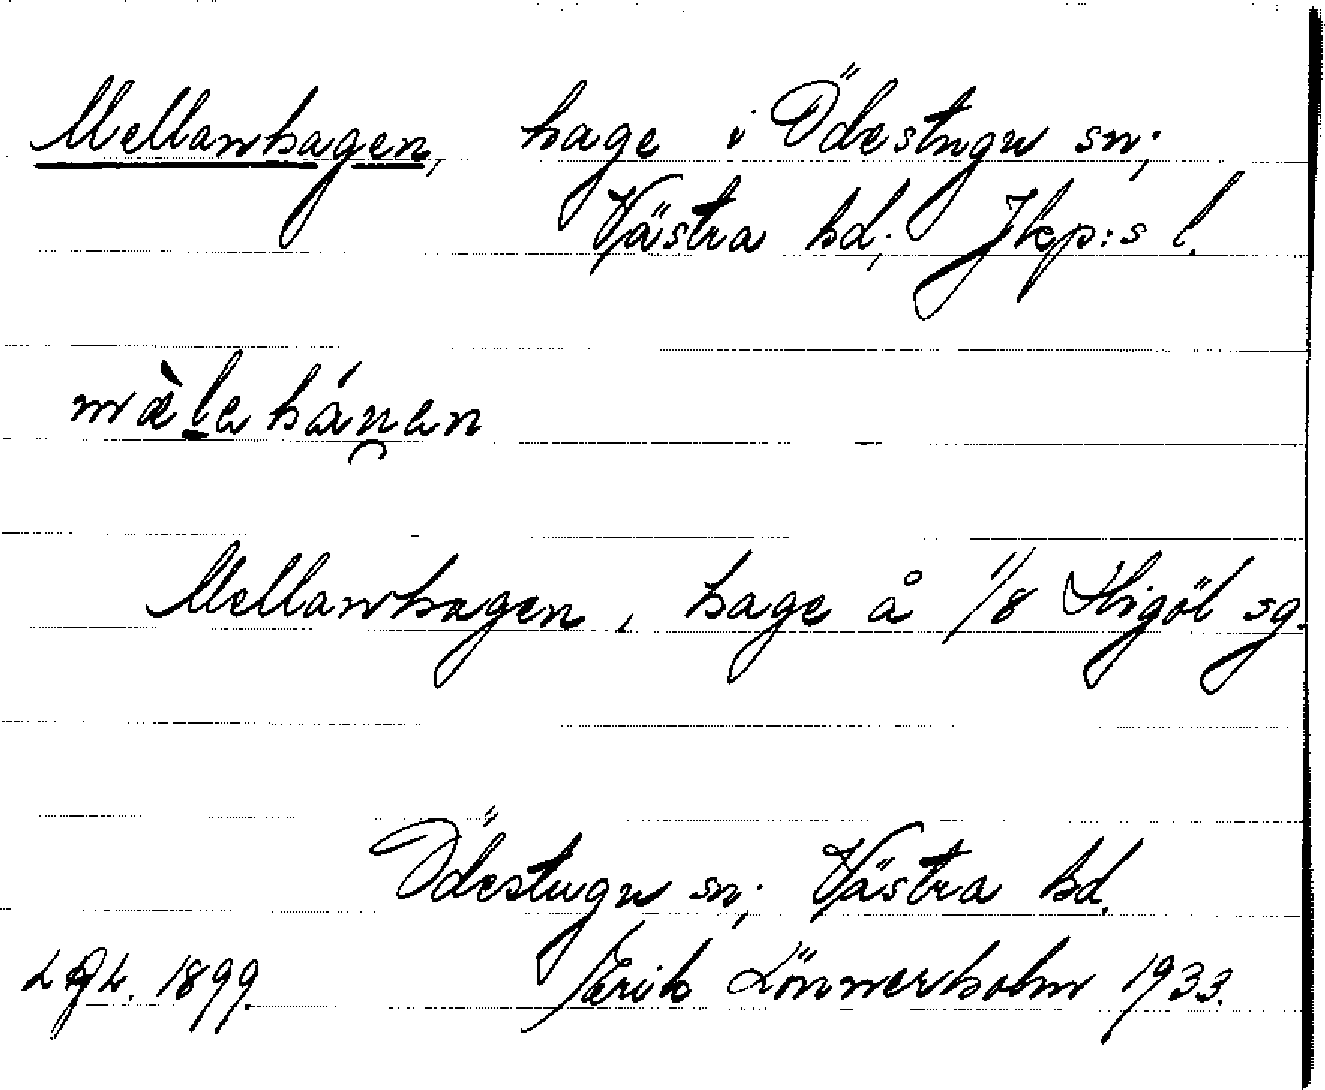 Mellanhagen, hage i Ödestugu sn;
Västra hd; Jkp:s l.
mæ̀lahágen
Mellanhagen, hage å 1/8 Stigöl sg.
Ödestugu sn; Västra hd.
1899. Erik Lönnerholm 1933.